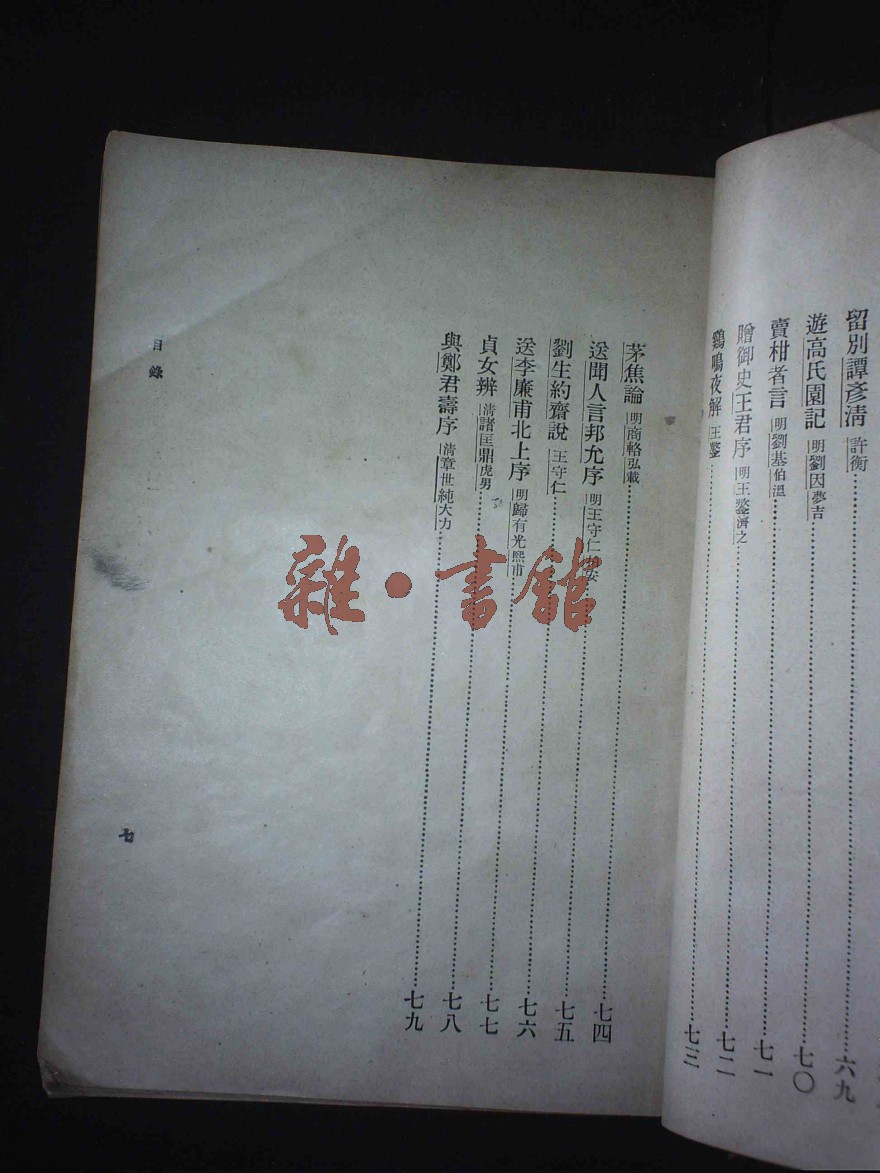 留別譚彥淸 許衡 六九
遊高氏園記 明劉因夢吉 七〇
賣柑者言 明劉基伯溫 七一
贈御史王君序 明王鏊濟之 七二
鷄鳴夜解 王鏊 七三
茅焦論 明商輅弘載 七四
送聞人言邦允序 明王守仁安 七五
劉生約齋說 王守仁 七六
送李廉甫北上序 明歸有光熙甫 七七
貞女辨 淸諸匡鼎虎男 七八
與鄭君壽序 淸章世純大力 七九
目錄
七
雜·書館